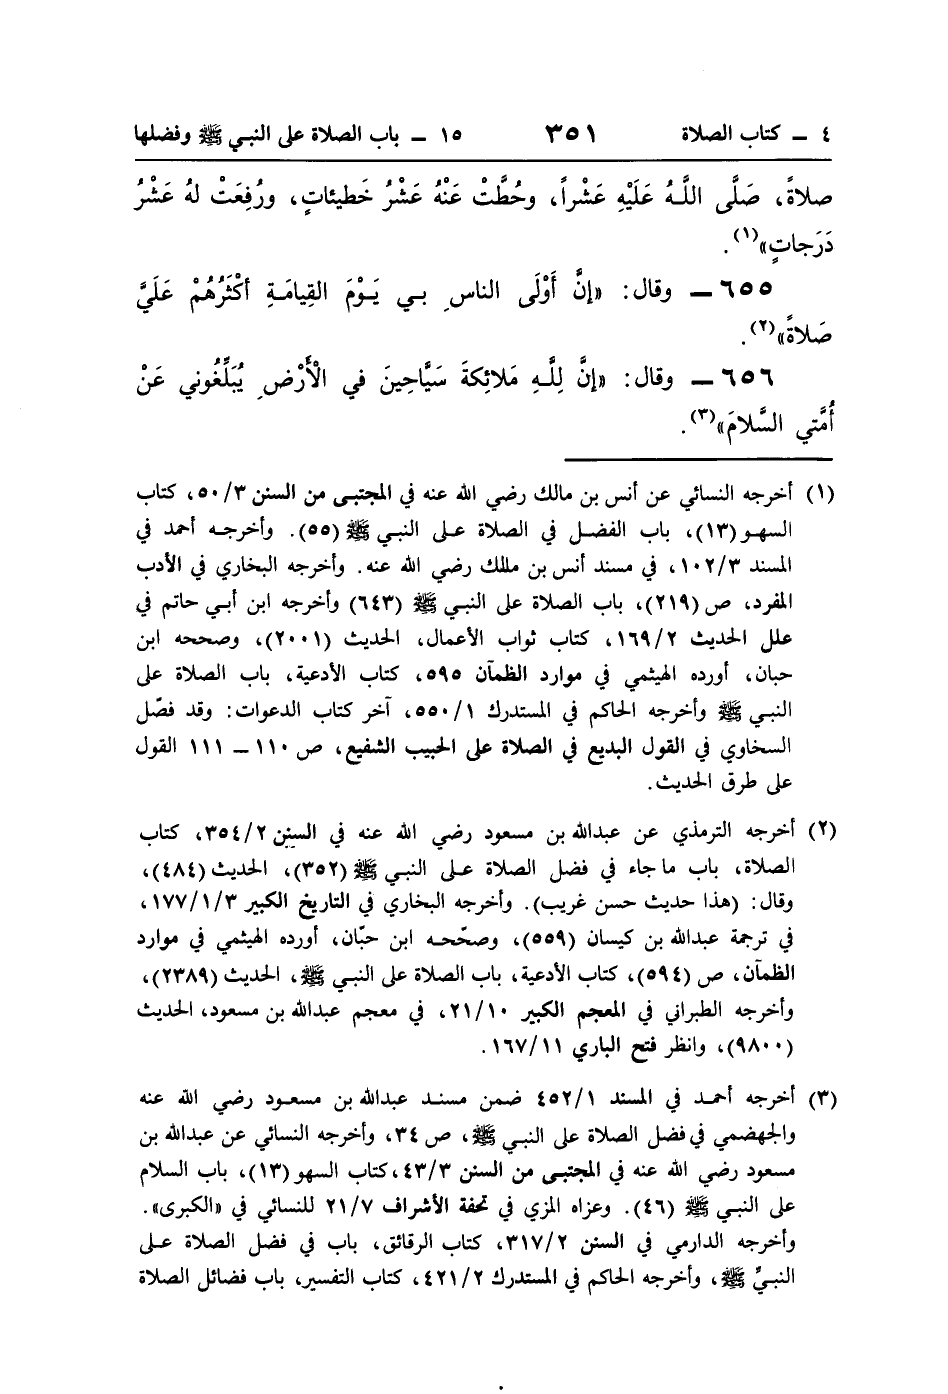 ٤ ــ كتاب الصلاة ٣٥١ ١٥ ــ باب الصلاة على النبي ﷺ وفضلها
صلاةً، صَلَّى اللَّـهُ عَلَيْهِ عَشْراً، وحُطَّتْ عَنْهُ عَشْرُ خَطيئاتٍ، ورُفِعَتْ لهُ عَشْرُ
دَرَجاتٍ»(١).
٦٥٥ ــ وقال: «إنَّ أَوْلَى الناسِ بي يَوْمَ القِيامَةِ أكْثَرُهُمْ عَلَيَّ
صَلاةً»(٢).
٦٥٦ ــ وقال: «إنَّ لِلَّـهِ مَلائِكةً سَيَّاحِينَ في الْأَرْضِ يُبَلِّغُوني عَنْ
أُمَّتي السَّلامَ»(٣).
(١) أخرجه النسائي عن أنس بن مالك رضي الله عنه في المجتبى من السنن ٥٠/٣، كتاب
السهو (١٣)، باب الفضل في الصلاة على النبي ﷺ (٥٥). وأخرجه أحمد في
المسند ١٠٢/٣، في مسند أنس بن مالك رضي الله عنه. وأخرجه البخاري في الأدب
المفرد، ص (٢١٩)، باب الصلاة على النبي ﷺ (٦٤٣) وأخرجه ابن أبي حاتم في
علل الحديث ١٦٩/٢، كتاب ثواب الأعمال، الحديث (٢٠٠١)، وصححه ابن
حبان، أورده الهيثمي في موارد الظمآن ٥٩٥، كتاب الأدعية، باب الصلاة على
النبي ﷺ وأخرجه الحاكم في المستدرك ٥٥٠/١، آخر كتاب الدعوات: وقد فصّل
السخاوي في القول البديع في الصلاة على الحبيب الشفيع، ص ١١٠ ــ ١١١ القول
على طرق الحديث.
(٢) أخرجه الترمذي عن عبدالله بن مسعود رضي الله عنه في السنن ٣٥٤/٢، كتاب
الصلاة، باب ما جاء في فضل الصلاة على النبي ﷺ (٣٥٢)، الحديث (٤٨٤)،
وقال: (هذا حديث حسن غريب). وأخرجه البخاري في التاريخ الكبير ١٧٧/١/٣،
في ترجمة عبدالله بن كيسان (٥٥٩)، وصحّحه ابن حبّان، أورده الهيثمي في موارد
الظمآن، ص (٥٩٤)، كتاب الأدعية، باب الصلاة على النبي ﷺ، الحديث (٢٣٨٩)،
وأخرجه الطبراني في المعجم الكبير ٢١/١٠، في معجم عبدالله بن مسعود، الحديث
(٩٨٠٠)، وانظر فتح الباري ١٦٧/١١.
(٣) أخرجه أحمد في المسند ٤٥٢/١ ضمن مسند عبدالله بن مسعود رضي الله عنه
والجهضمي في فضل الصلاة على النبي ﷺ، ص ٣٤، وأخرجه النسائي عن عبدالله بن
مسعود رضي الله عنه في المجتبى من السنن ٤٣/٣، كتاب السهو (١٣)، باب السلام
على النبي ﷺ (٤٦). وعزاه المزي في تحفة الأشراف ٢١/٧ للنسائي في «الكبرى».
وأخرجه الدارمي في السنن ٣١٧/٢، كتاب الرقائق، باب في فضل الصلاة على
النبيِّ ﷺ، وأخرجه الحاكم في المستدرك ٤٢١/٢، كتاب التفسير، باب فضائل الصلاة